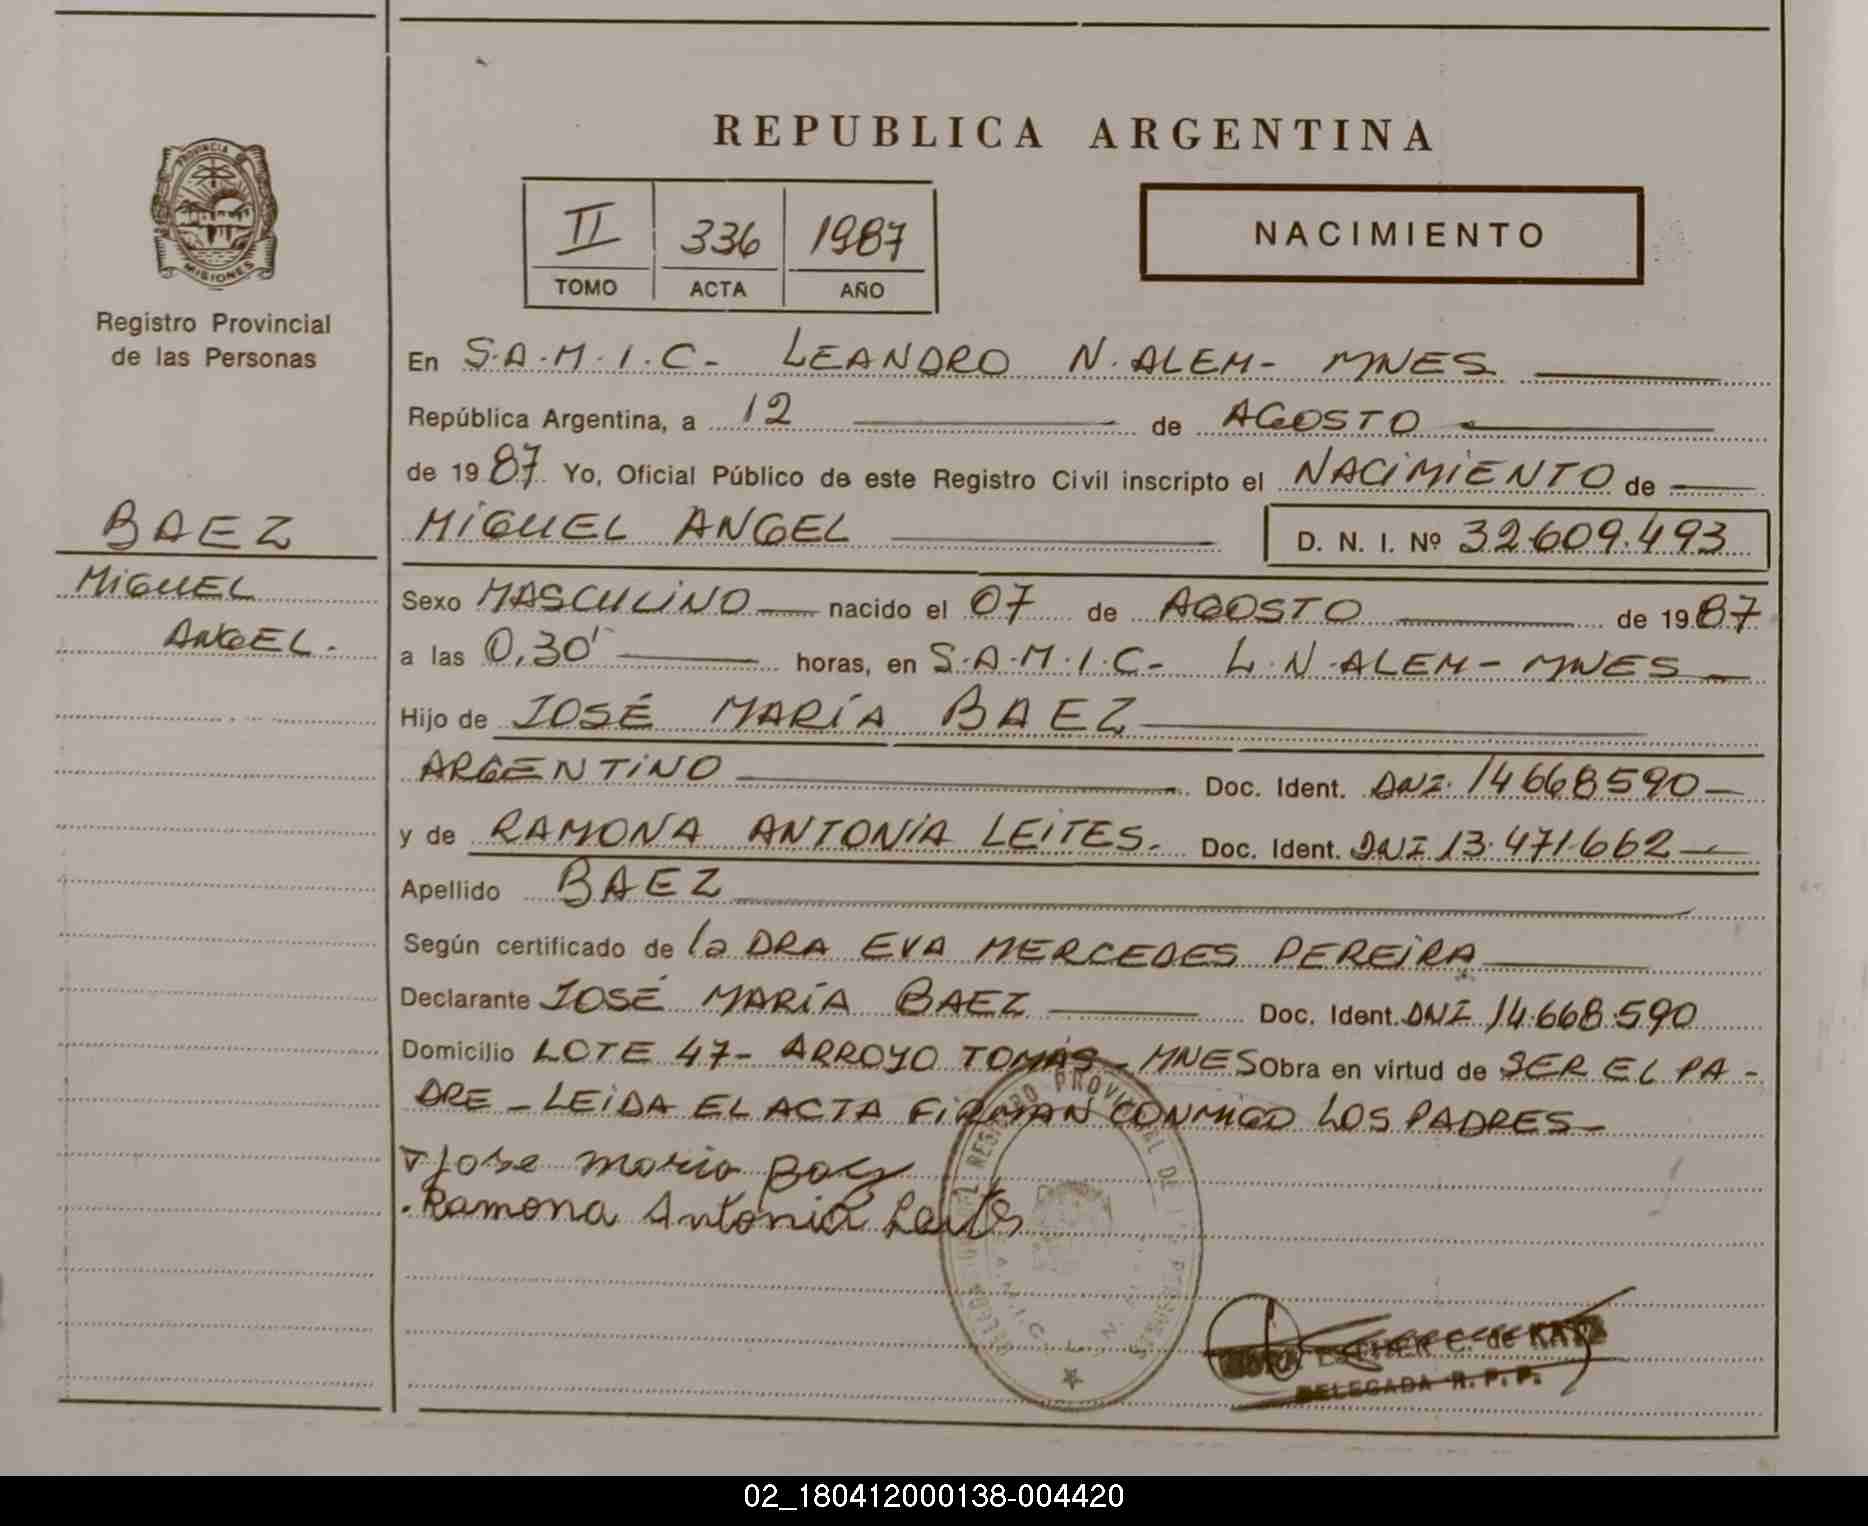 REPUBLICA ARGENTINA
PROVINCIA DE
MISIONES
Registro Provincial
de las Personas
II 336 1987
TOMO ACTA AÑO
NACIMIENTO
BAEZ
MIGUEL
ANGEL.
En S.A.M.I.C- LEANDRO N.ALEM- MNES
República Argentina, a 12 de AGOSTO
de 1987. Yo, Oficial Público de este Registro Civil inscripto el NACIMIENTO de
MIGUEL ANGEL D. N. I. Nº 32.609.493
Sexo MASCULINO nacido el 07 de AGOSTO de 1987
a las 0,30' horas, en S.A.M.I.C- L.N.ALEM- MNES
Hijo de JOSÉ MARÍA BAEZ
ARGENTINO Doc. Ident. DNI. 14668590-
y de RAMONA ANTONIA LEITES. Doc. Ident. DNI 13.471.662-
Apellido BAEZ
Según certificado de la DRA EVA MERCEDES PEREIRA
Declarante JOSÉ MARÍA BAEZ Doc. Ident. DNI 14.668.590
Domicilio LOTE 47- ARROYO TOMÁS- MNES Obra en virtud de SER EL PA-
DRE - LEIDA EL ACTA FIRMAN CONMIGO LOS PADRES-
Jose Maria Baez
Ramona Antonia Leites
ESTHER C. de
DELEGADA R. P. P.
02_180412000138-004420